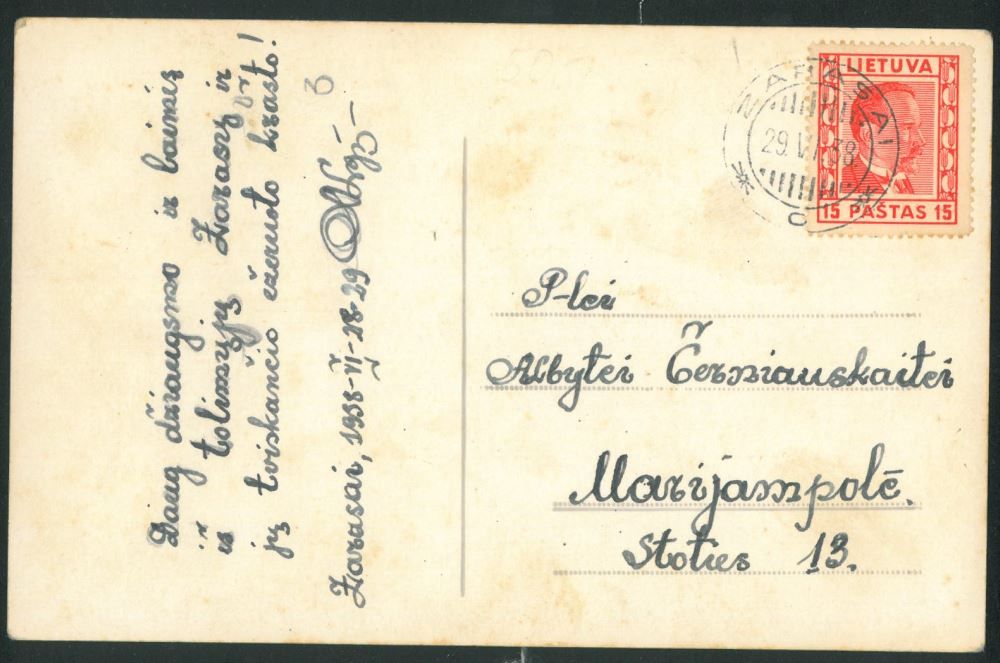 Daug džiaugsmo ir
iš tolimųjų Zarasų ir
jų tviskančio ežeruoto krašto!
Zarasai, 1938-VI-28-29
3
ZARASAI
29.VI.38
C
LIETUVA
15 PAŠTAS 15
P-lei
Albytei Černiauskaitei
Marijampolė.
Stoties 13.